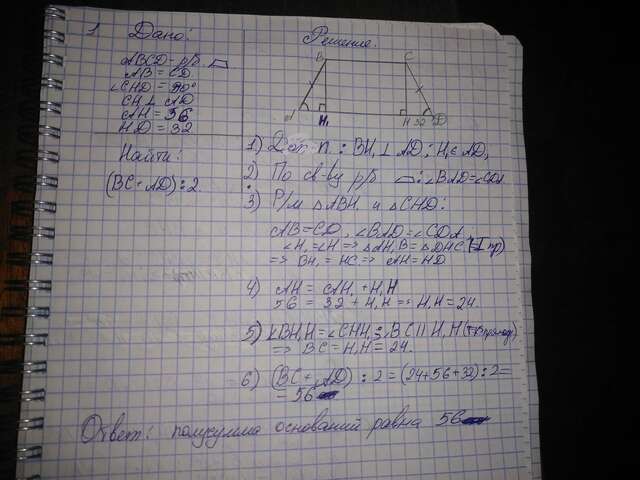 1. Дано:
ABCD - р/б
AB = CD
∠CHD = 90°
CH ⊥ AD
AH = 56
HD = 32
Найти:
(BC + AD) : 2.
Решение.
B C
H₁ H 32 D
1) Доп. п. : BH₁ ⊥ AD; H₁ ∈ AD,
2) По св-ву р/б : ∠BAD = ∠CDA.
3) Р/м △ABH и △CHD:
AB = CD, ∠BAD = ∠CDA,
∠H₁ = ∠H => △AH₁B = △DHC
=> BH₁ = HC => AH = HD
4) AH = AH₁ + H₁H
56 = 32 + H₁H => H₁H = 24.
5) BC || H₁H
=> BC = H₁H = 24.
6) (BC + AD) : 2 = (24 + 56 + 32) : 2 =
= 56
Ответ: полусумма оснований равна 56